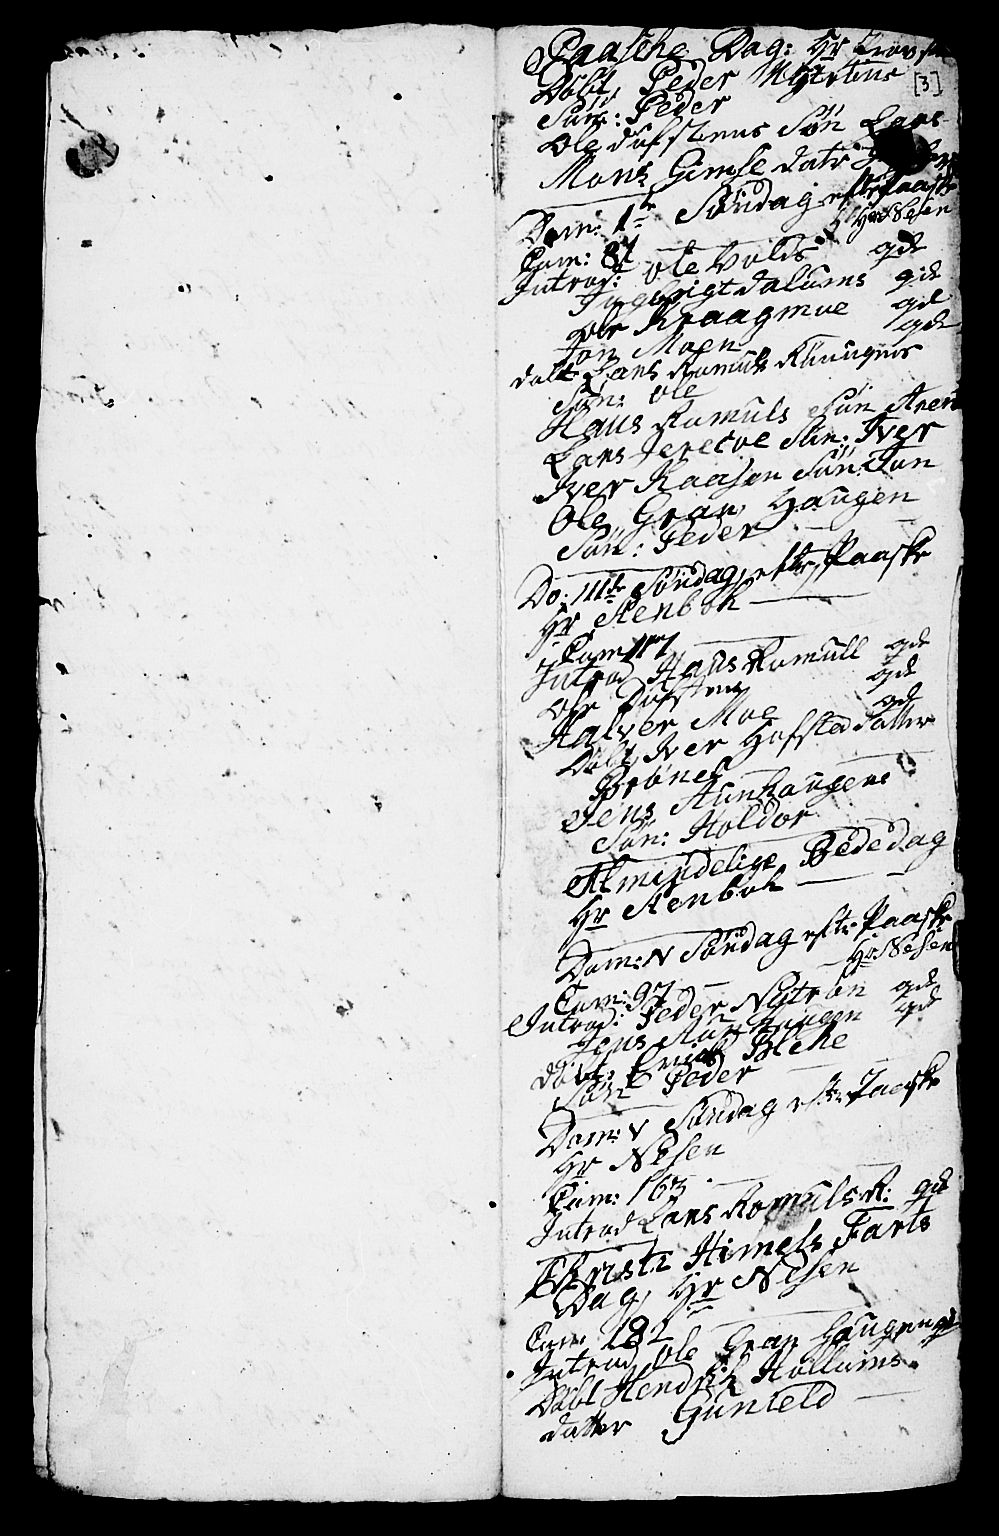 Paasche Dag: Hr Provst
[3]
Døbt Peder Nytrøns
Søn: Peder
Ole Dufstenes Søn Lars
Mons Gimse datr
Dom: 1te Søndag efter Paaske
Hr Nesen
Com: 87
Introd: Ole Volds qde
Ingebrigt Dalums qde
Ole Kraagmoe qde
Jon Moen qde
døbt Lars Romuls Rønningens
Søn: Ole
Hans Romuls Søn Aren
Lars Jeretoe Søn: Iver
Iver Kaasen Søn: Jon
Ole Gran Haugen
Søn: Peder
Do: IIIde Søndag eftr Paaske
Hr Stenbok
Com 117
Introd Hans Romull qde
Ole Dufsten qde
Halver Moe qde
Døbt Iver Hofsted datter
Brønel
Jens Aunhaugens
Søn: Holdor
Almindelige Bededag
Hr Stenbok
Dom: IV Søndag eftr Paaske
Hr Nesen
Com: 97
Introd: Peder Nytrøn qde
Jens Aunhaugen qde
døbt: Erich Bleke
Søn Peder
Dom: V Søndag eftr Paaske
Hr Nesen
Com: 163
Introd Lars Romuls R: qde
Christi Himels Farts
Dag, Hr Nesen
Com: 181
Introd Ole Gran Haugen qde
Døbt Hendrich Hollums
datter Gunild